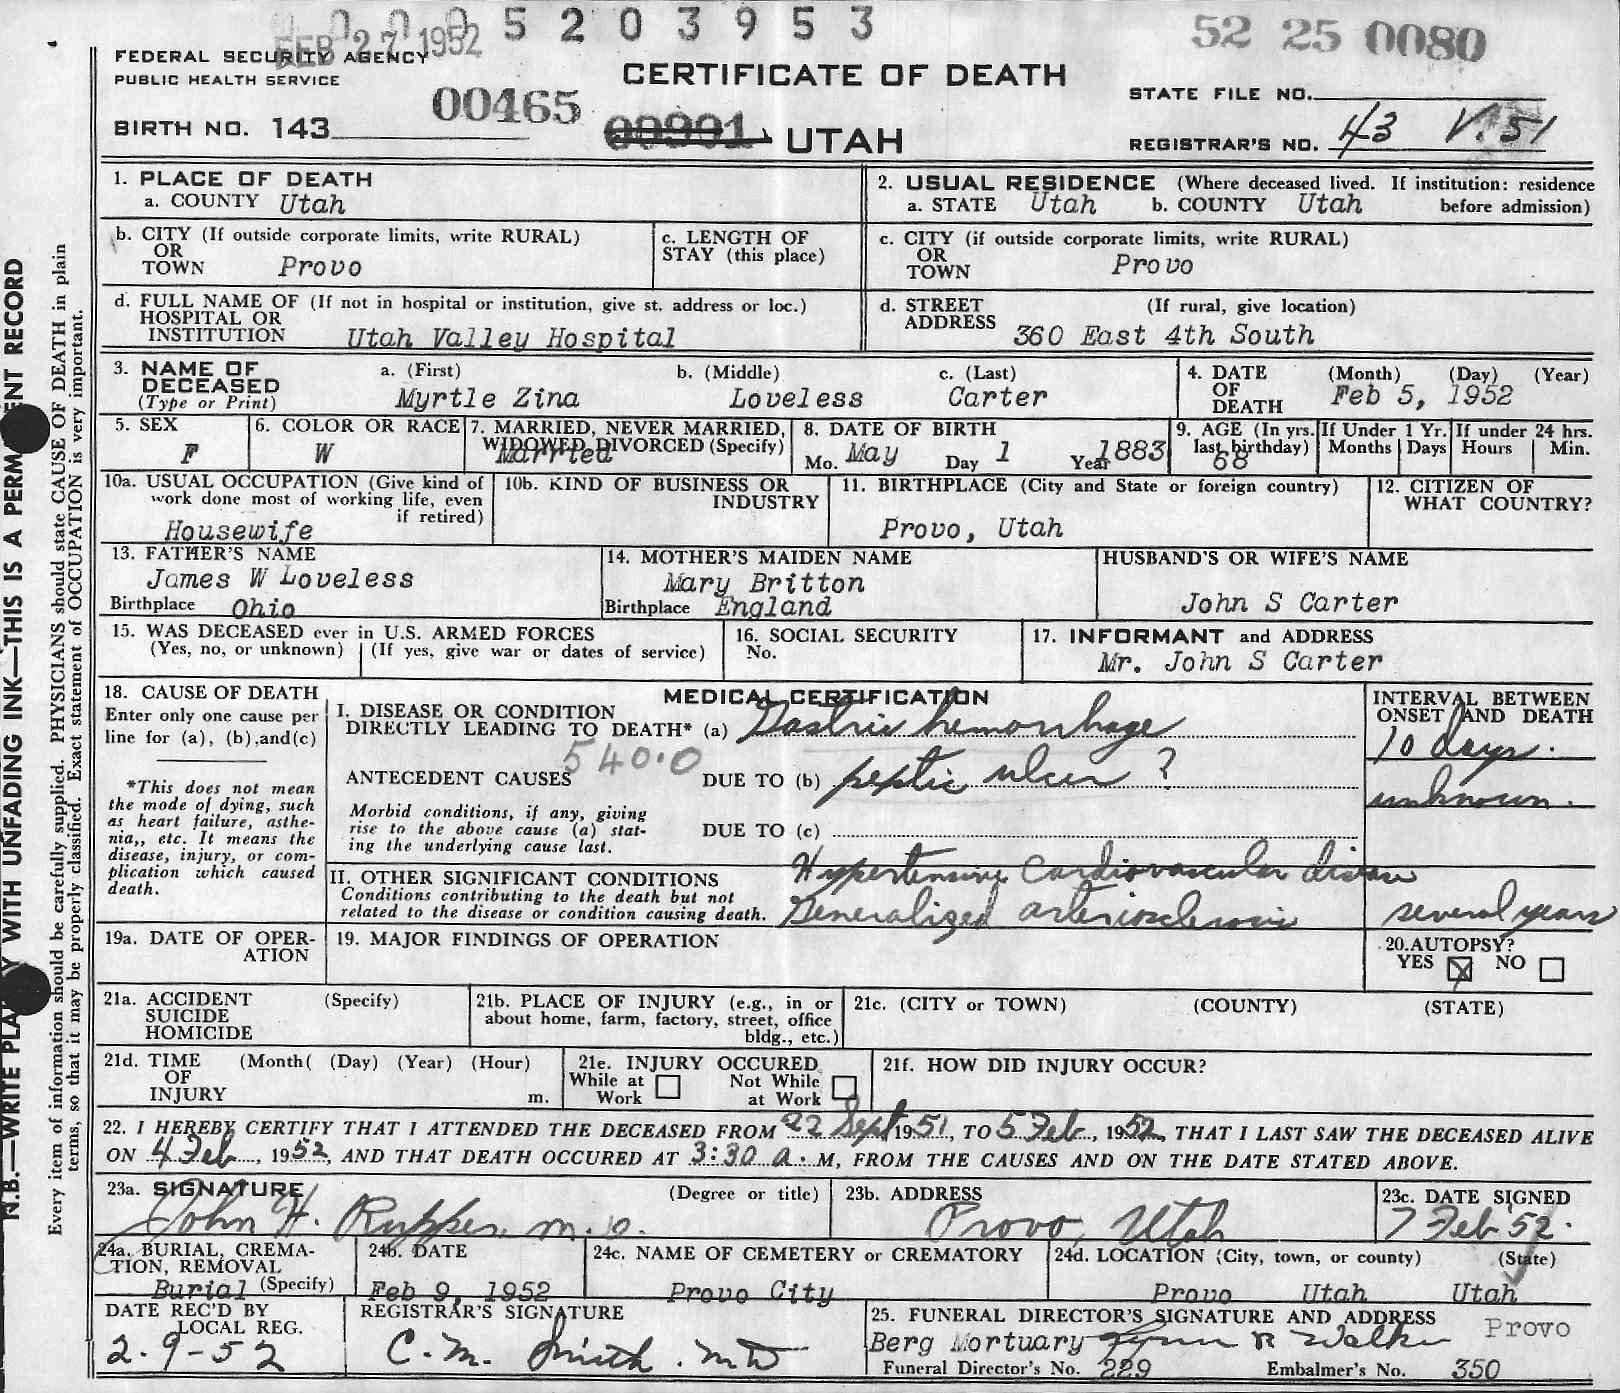 0 0 0 5 2 0 3 9 5 3
FEB 27 1952
52 25 0080
FEDERAL SECURITY AGENCY
PUBLIC HEALTH SERVICE
CERTIFICATE OF DEATH
STATE FILE NO.
BIRTH NO. 143
00465
00901 UTAH
REGISTRAR'S NO. 43 V. 51
1. PLACE OF DEATH
a. COUNTY Utah
2. USUAL RESIDENCE (Where deceased lived. If institution: residence
a. STATE Utah b. COUNTY Utah before admission)
b. CITY (If outside corporate limits, write RURAL)
OR
TOWN Provo
c. LENGTH OF
STAY (this place)
c. CITY (if outside corporate limits, write RURAL)
OR
TOWN Provo
d. FULL NAME OF (If not in hospital or institution, give st. address or loc.)
HOSPITAL OR
INSTITUTION Utah Valley Hospital
d. STREET (If rural, give location)
ADDRESS 360 East 4th South
3. NAME OF a. (First) b. (Middle) c. (Last)
DECEASED
(Type or Print) Myrtle Zina Loveless Carter
4. DATE (Month) (Day) (Year)
OF
DEATH Feb 5, 1952
5. SEX
F
6. COLOR OR RACE
W
7. MARRIED, NEVER MARRIED,
WIDOWED, DIVORCED (Specify)
Married
8. DATE OF BIRTH
Mo. May Day 1 Year 1883
9. AGE (In yrs.
last birthday)
68
If Under 1 Yr.
Months Days
If under 24 hrs.
Hours Min.
10a. USUAL OCCUPATION (Give kind of
work done most of working life, even
if retired)
Housewife
10b. KIND OF BUSINESS OR
INDUSTRY
11. BIRTHPLACE (City and State or foreign country)
Provo, Utah
12. CITIZEN OF
WHAT COUNTRY?
13. FATHER'S NAME
James W Loveless
Birthplace Ohio
14. MOTHER'S MAIDEN NAME
Mary Britton
Birthplace England
HUSBAND'S OR WIFE'S NAME
John S Carter
15. WAS DECEASED ever in U.S. ARMED FORCES
(Yes, no, or unknown) (If yes, give war or dates of service)
16. SOCIAL SECURITY
No.
17. INFORMANT and ADDRESS
Mr. John S Carter
18. CAUSE OF DEATH
Enter only one cause per
line for (a), (b),and(c)
*This does not mean
the mode of dying, such
as heart failure, asthe-
nia,, etc. It means the
disease, injury, or com-
plication which caused
death.
MEDICAL CERTIFICATION
I. DISEASE OR CONDITION
DIRECTLY LEADING TO DEATH* (a) Gastric hemorrhage
540.0
ANTECEDENT CAUSES DUE TO (b) peptic ulcer ?
Morbid conditions, if any, giving
rise to the above cause (a) stat-
ing the underlying cause last.
DUE TO (c)
II. OTHER SIGNIFICANT CONDITIONS
Conditions contributing to the death but not
related to the disease or condition causing death.
Hypertensive Cardiovascular disease
Generalized arteriosclerosis
INTERVAL BETWEEN
ONSET AND DEATH
10 days.
unknown.
several years
19a. DATE OF OPER-
ATION
19. MAJOR FINDINGS OF OPERATION
20.AUTOPSY?
YES X NO
21a. ACCIDENT (Specify)
SUICIDE
HOMICIDE
21b. PLACE OF INJURY (e.g., in or
about home, farm, factory, street, office
bldg., etc.)
21c. (CITY or TOWN) (COUNTY) (STATE)
21d. TIME (Month( (Day) (Year) (Hour)
OF
INJURY m.
21e. INJURY OCCURED
While at Not While
Work at Work
21f. HOW DID INJURY OCCUR?
22. I HEREBY CERTIFY THAT I ATTENDED THE DECEASED FROM 22 Sept 1951, TO 5 Feb, 1952, THAT I LAST SAW THE DECEASED ALIVE
ON 4 Feb, 1952, AND THAT DEATH OCCURED AT 3:30 a. M, FROM THE CAUSES AND ON THE DATE STATED ABOVE.
23a. SIGNATURE (Degree or title)
John H. Rupper, M.D.
23b. ADDRESS
Provo, Utah
23c. DATE SIGNED
7 Feb 52.
24a. BURIAL, CREMA-
TION, REMOVAL
Burial (Specify)
24b. DATE
Feb 9, 1952
24c. NAME OF CEMETERY or CREMATORY
Provo City
24d. LOCATION (City, town, or county) (State)
Provo Utah Utah
DATE REC'D BY
LOCAL REG.
2-9-52
REGISTRAR'S SIGNATURE
C.M. Smith. MD
25. FUNERAL DIRECTOR'S SIGNATURE AND ADDRESS
Berg Mortuary R Walker Provo
Funeral Director's No. 229 Embalmer's No. 350
N.B.—WRITE PLAINLY WITH UNFADING INK—THIS IS A PERMANENT RECORD
Every item of information should be carefully supplied. PHYSICIANS should state CAUSE OF DEATH in plain
terms, so that it may be properly classified. Exact statement of OCCUPATION is very important.